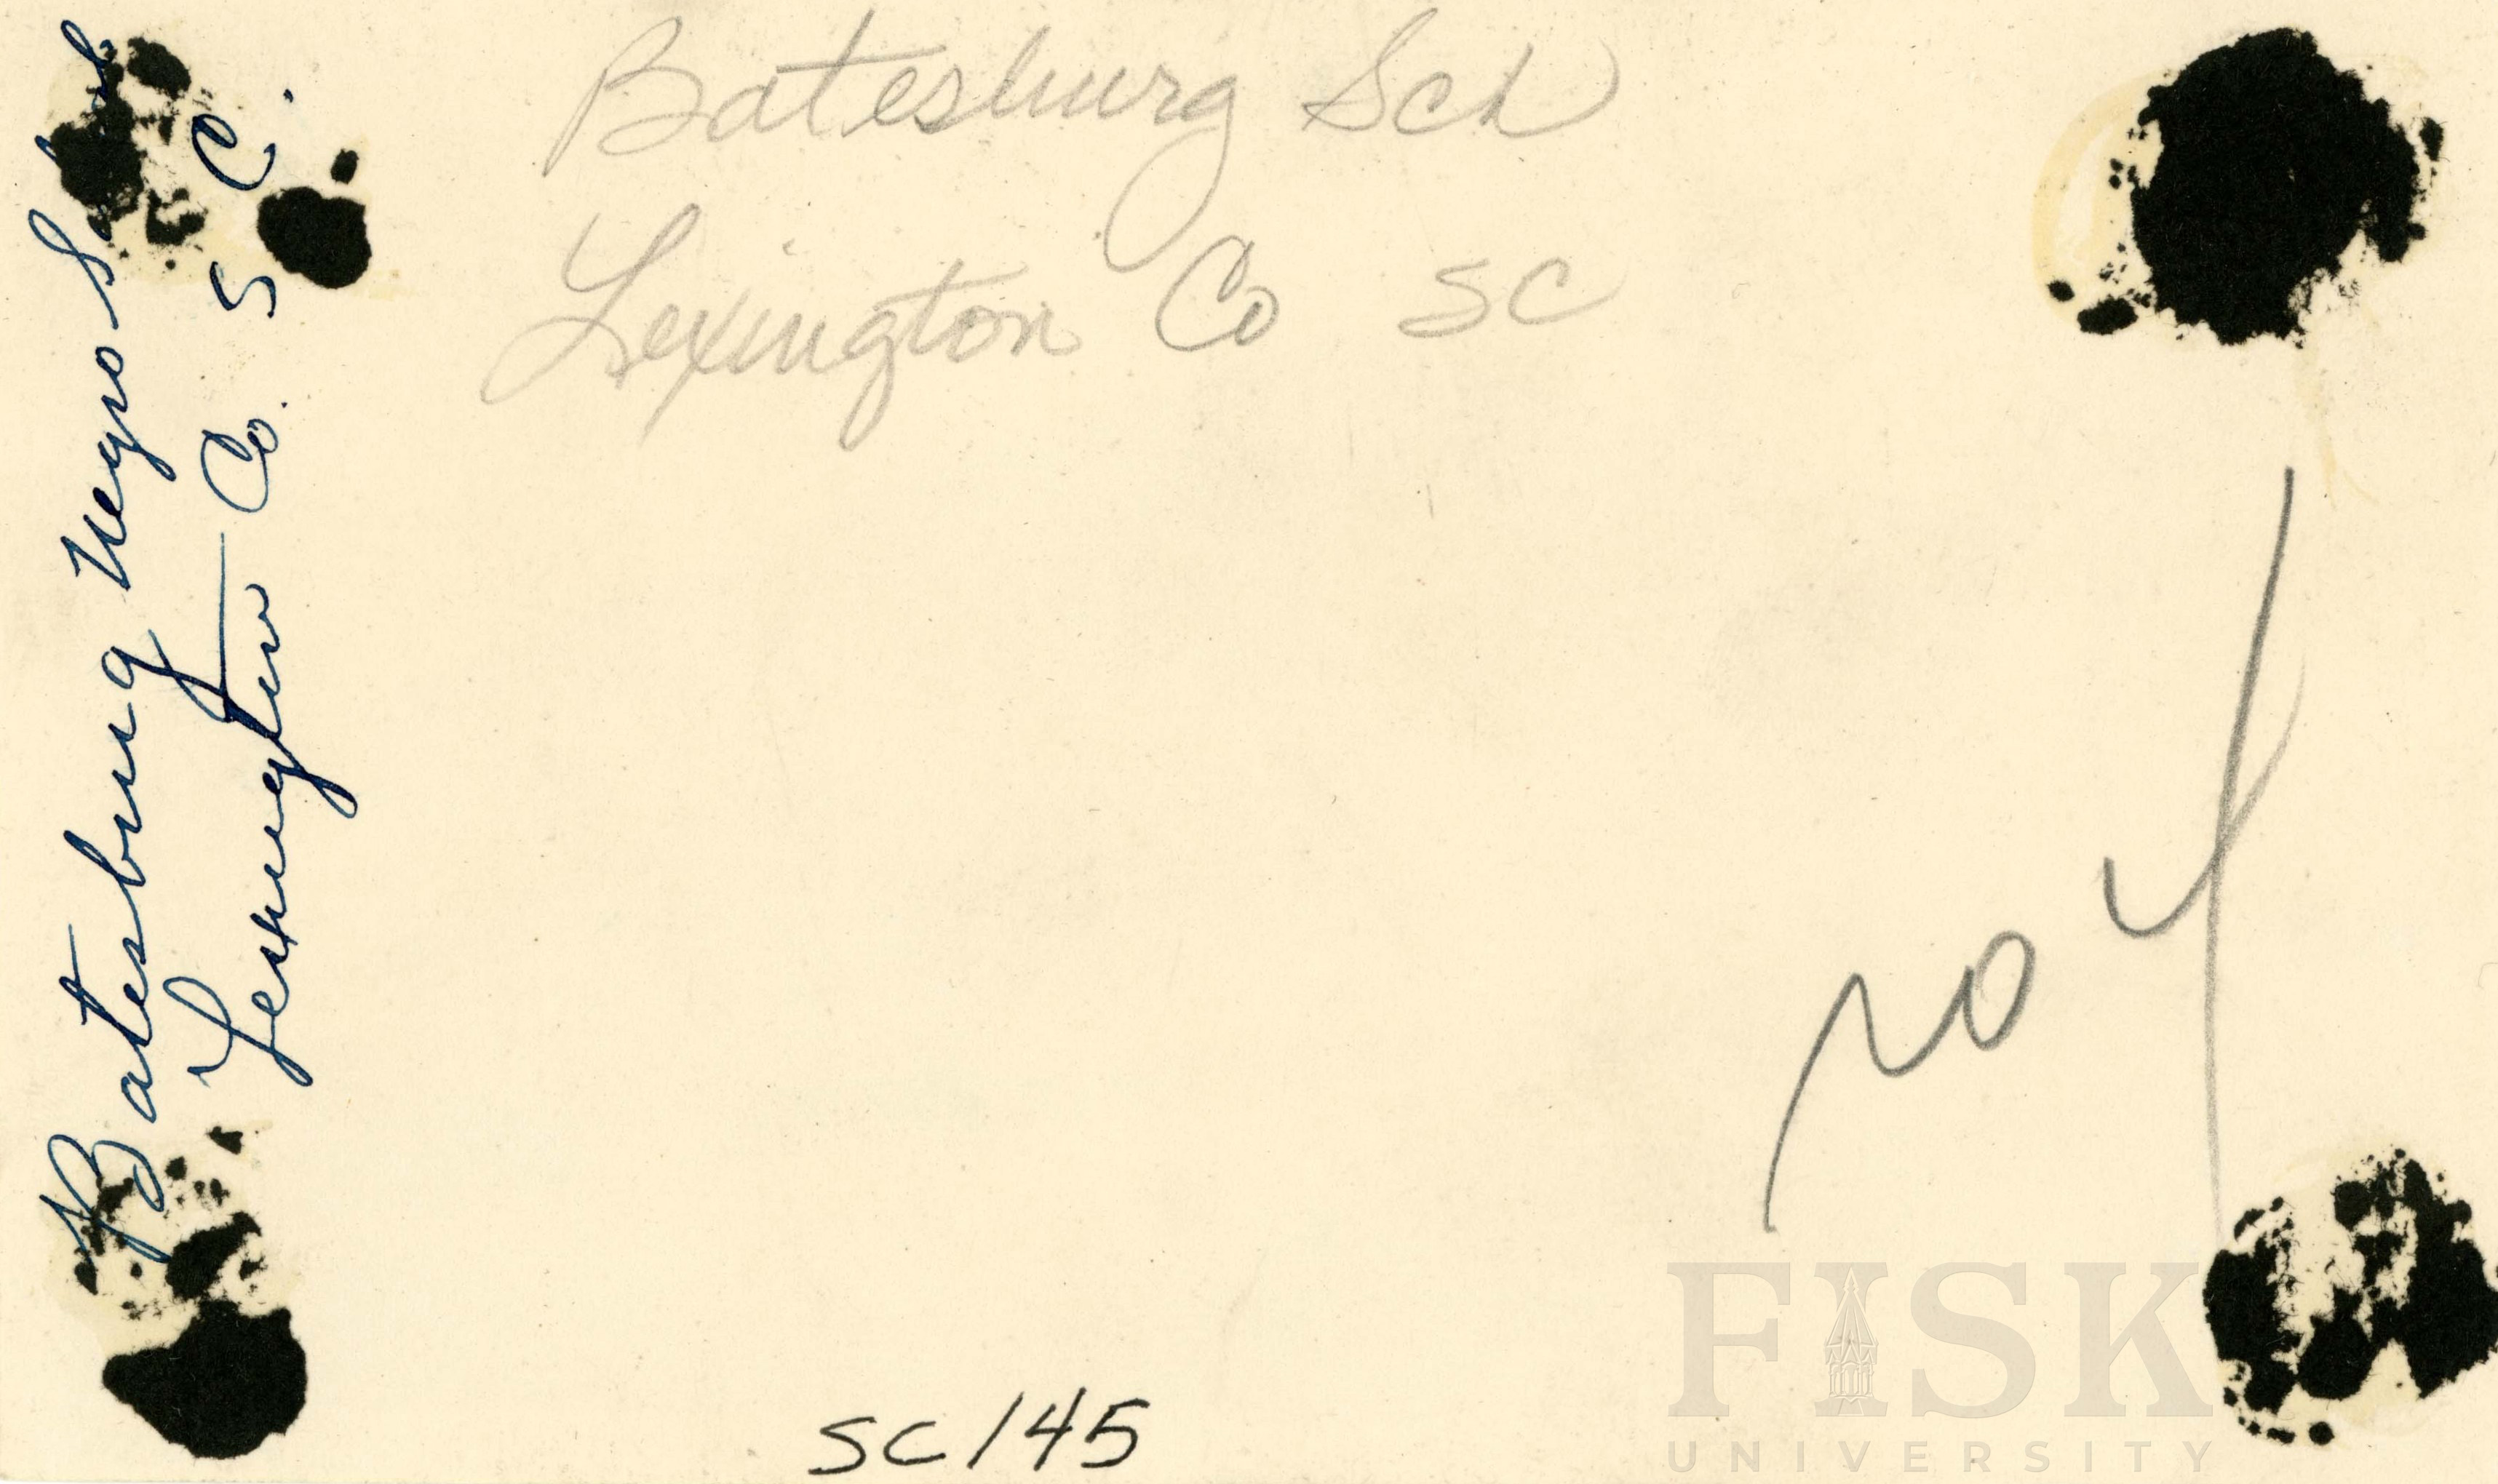 Batesburg Sch
Lexington Co SC
Batesburg Negro School
Lexington Co. S C.
SC 145
FISK
UNIVERSITY